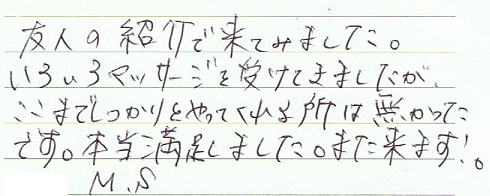 友人の紹介で来てみました。
いろいろマッサージを受けてきましたが、
ここまでしっかりとやってくれる所は無かった
です。本当満足しました。また来ます!。
M.S